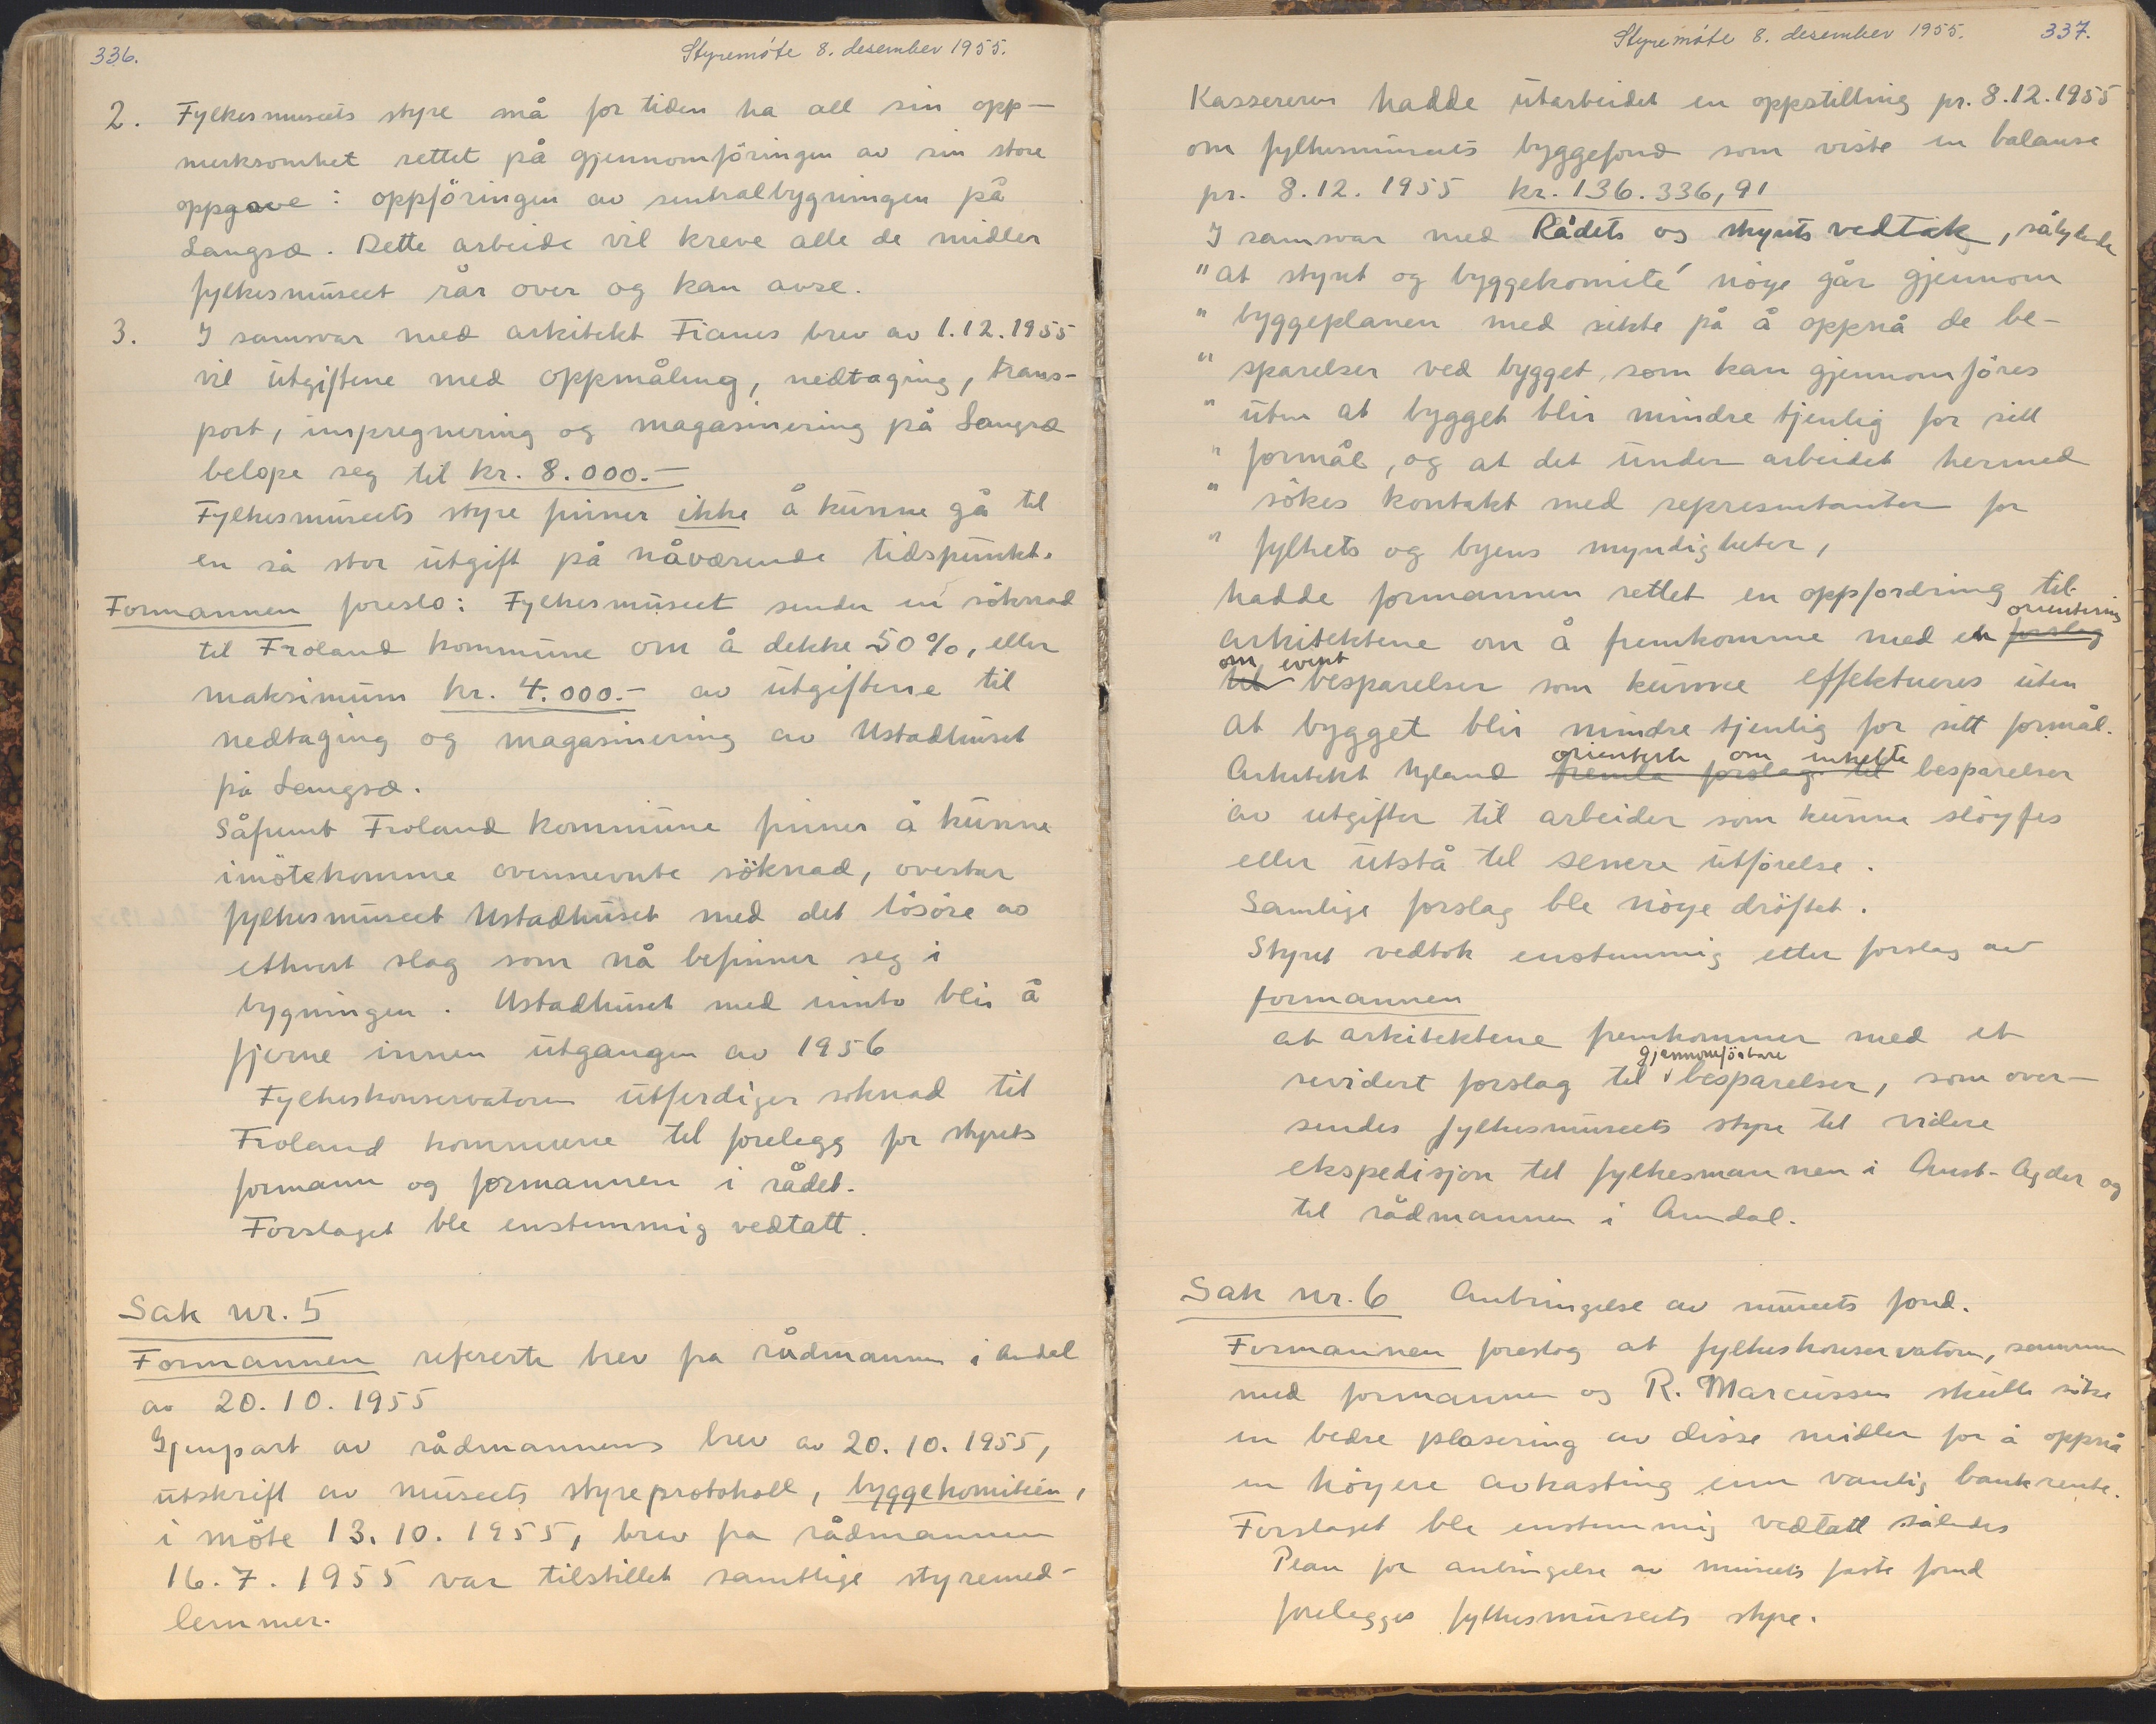 336.
Styremöte 8. desember 1955.
2. Fylkesmuseets styre må for tiden ha all sin opp-
merksomhet rettet på gjennomföringen av sin store
oppgave: oppföringen av sentralbygningen på
Langsæ. Dette arbeide vil kreve alle de midler
fylkesmuseet rår over og kan avse.
3. I samsvar med arkitekt Fianes brev av 1.12.1955
vil utgiftene med oppmåling, nedtaging, trans-
port, impregnering og magasinering på Langsæ
belöpe seg til kr. 8.000.-
Fylkesmuseets styre finner ikke å kunne gå til
en så stor utgift på nåværende tidspunkt.
Formannen foreslo: Fylkesmuseet sender en söknad
til Froland kommune om å dekke 50%, eller
maksimum kr. 4.000.- av utgiftene til
nedtaging og magasinering av Ustadhuset
på Langsæ.
Såfremt Froland kommune finner å kunne
imötekomme ovennevnte söknad, overtar
fylkesmuseet Ustadhuset med det lösöre av
ethvert slag som nå befinner seg i
bygningen. Ustadhuset med innbo blir å
fjerne innen utgangen av 1956
Fylkeskonservatoren utferdiger söknad til
Froland kommune til forelegg for styrets
formann og formannen i rådet.
Forslaget ble enstemmig vedtatt.
Sak nr. 5
Formannen refererte brev fra rådmannen i Arendal
av 20.10.1955
Gjenpart av rådmannens brev av 20.10.1955,
utskrift av museets styreprotokoll, byggekomitéen,
i möte 13.10.1955, brev fra rådmannen
16.7.1955 var tilstillet samtlige styremed-
lemmer.
Styremöte 8. desember 1955.
337.
Kassereren hadde utarbeidet en oppstilling pr. 8.12.1955
om fylkesmuseets byggefond som viste en balanse
pr. 8.12.1955 kr. 136.336,91
I samsvar med Rådets og styrets vedtak, sålydende
"at styret og byggekomité nöye går gjennom
" byggeplanen med sikte på å oppnå de be-
" sparelser ved bygget som kan gjennomföres
" uten at bygget blir mindre tjenlig for sitt
" formål, og at det under arbeidet hermed
" sökes kontakt med representanter for
" fylkets og byens myndigheter,
hadde formannen rettet en oppfordring til
orientering
arkitektene om å fremkomme med en forslag
om event
til besparelser som kunne effektueres uten
at bygget blir mindre tjenlig for sitt formål.
orienterte om enkelte
Arkitekt Ugland fremla forslag til besparelser
av utgifter til arbeider som kunne slöyfes
eller utstå til senere utförelse.
Samlige forslag ble nöye dröftet.
Styret vedtok enstemmig etter forslag av
formannen
at arkitektene fremkommer med et
gjennomförbare
revidert forslag til besparelser, som over-
sendes fylkesmuseets styre til videre
ekspedisjon til fylkesmannen i Aust-Agder og
til rådmannen i Arendal.
Sak nr. 6 Anbringelse av museets fond.
Formannen foreslog at fylkeskonservatoren, sammen
med formannen og R. Marcussen skulle söke
en bedre plasering av disse midler for å oppnå
en höyere avkasting enn vanlig bankrente.
Forslaget ble enstemmig vedtatt således
Plan for anbringelse av museets faste fond
forelegges fylkesmuseets styre.